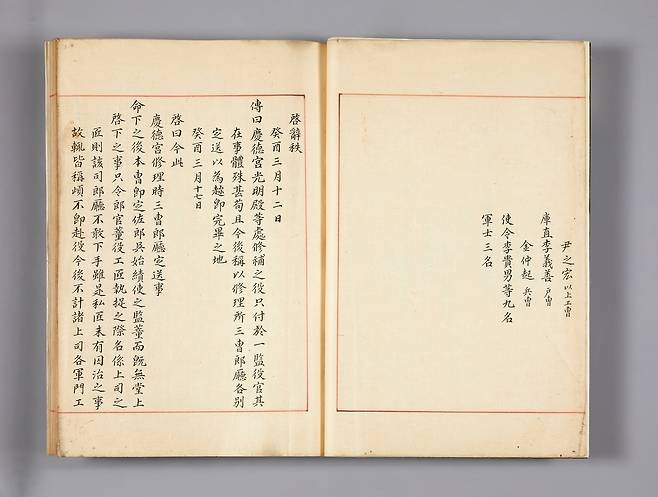 尹之宏 以上工曹
庫直李義善 戶曹
金仲起 兵曹
使令李貴男等九名
軍士三名
啓辭秩
癸酉三月十二日
傳曰慶德宮光明殿等處修補之役只付於一監役官其
在事體殊甚苟且今後稱以修理所三曹郎廳各別
定送以爲趁卽完畢之地
癸酉三月十七日
啓曰今此
慶德宮修理時三曹郎廳定送事
命下之後本曹卽定佐郎吳始績使之監董而旣無堂上
啓下之事只令郎官董役工匠執捉之際名係上司之
匠則該司郎廳不敢下手雖是私匠未有囚治之事
故輒皆稱頉不卽赴役今後不計諸上司各軍門工